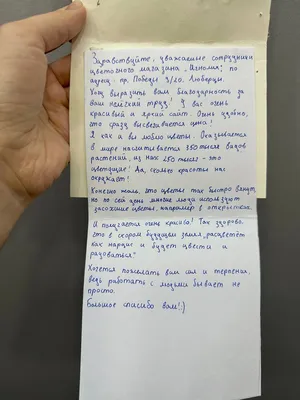 Здравствуйте, уважаемые сотрудники
цветочного магазина, по
адресу: пр. Победы 9/20. Люберцы.
Хочу выразить вам благодарность за
ваш нелёгкий труд! У вас очень
красивый и яркий сайт. Очень удобно,
что сразу высвечивается цена!
Я как и вы люблю цветы. Оказывается
в мире насчитывается 350 тысяч видов
растений, из них 250 тысяч - это
цветущие! Ах, сколько красоты нас
окружает!
Конечно жаль, что цветы так быстро вянут,
но по сей день многие люди используют
засохшие цветы, например в
И получается очень красиво! Так здорово
что в скором будущем земля расцветёт
как нарцис и будет цвести и
радоваться!
Хочется пожелать вам сил и терпения,
ведь работать с людьми бывает не
просто.
Большое спасибо вам!:)